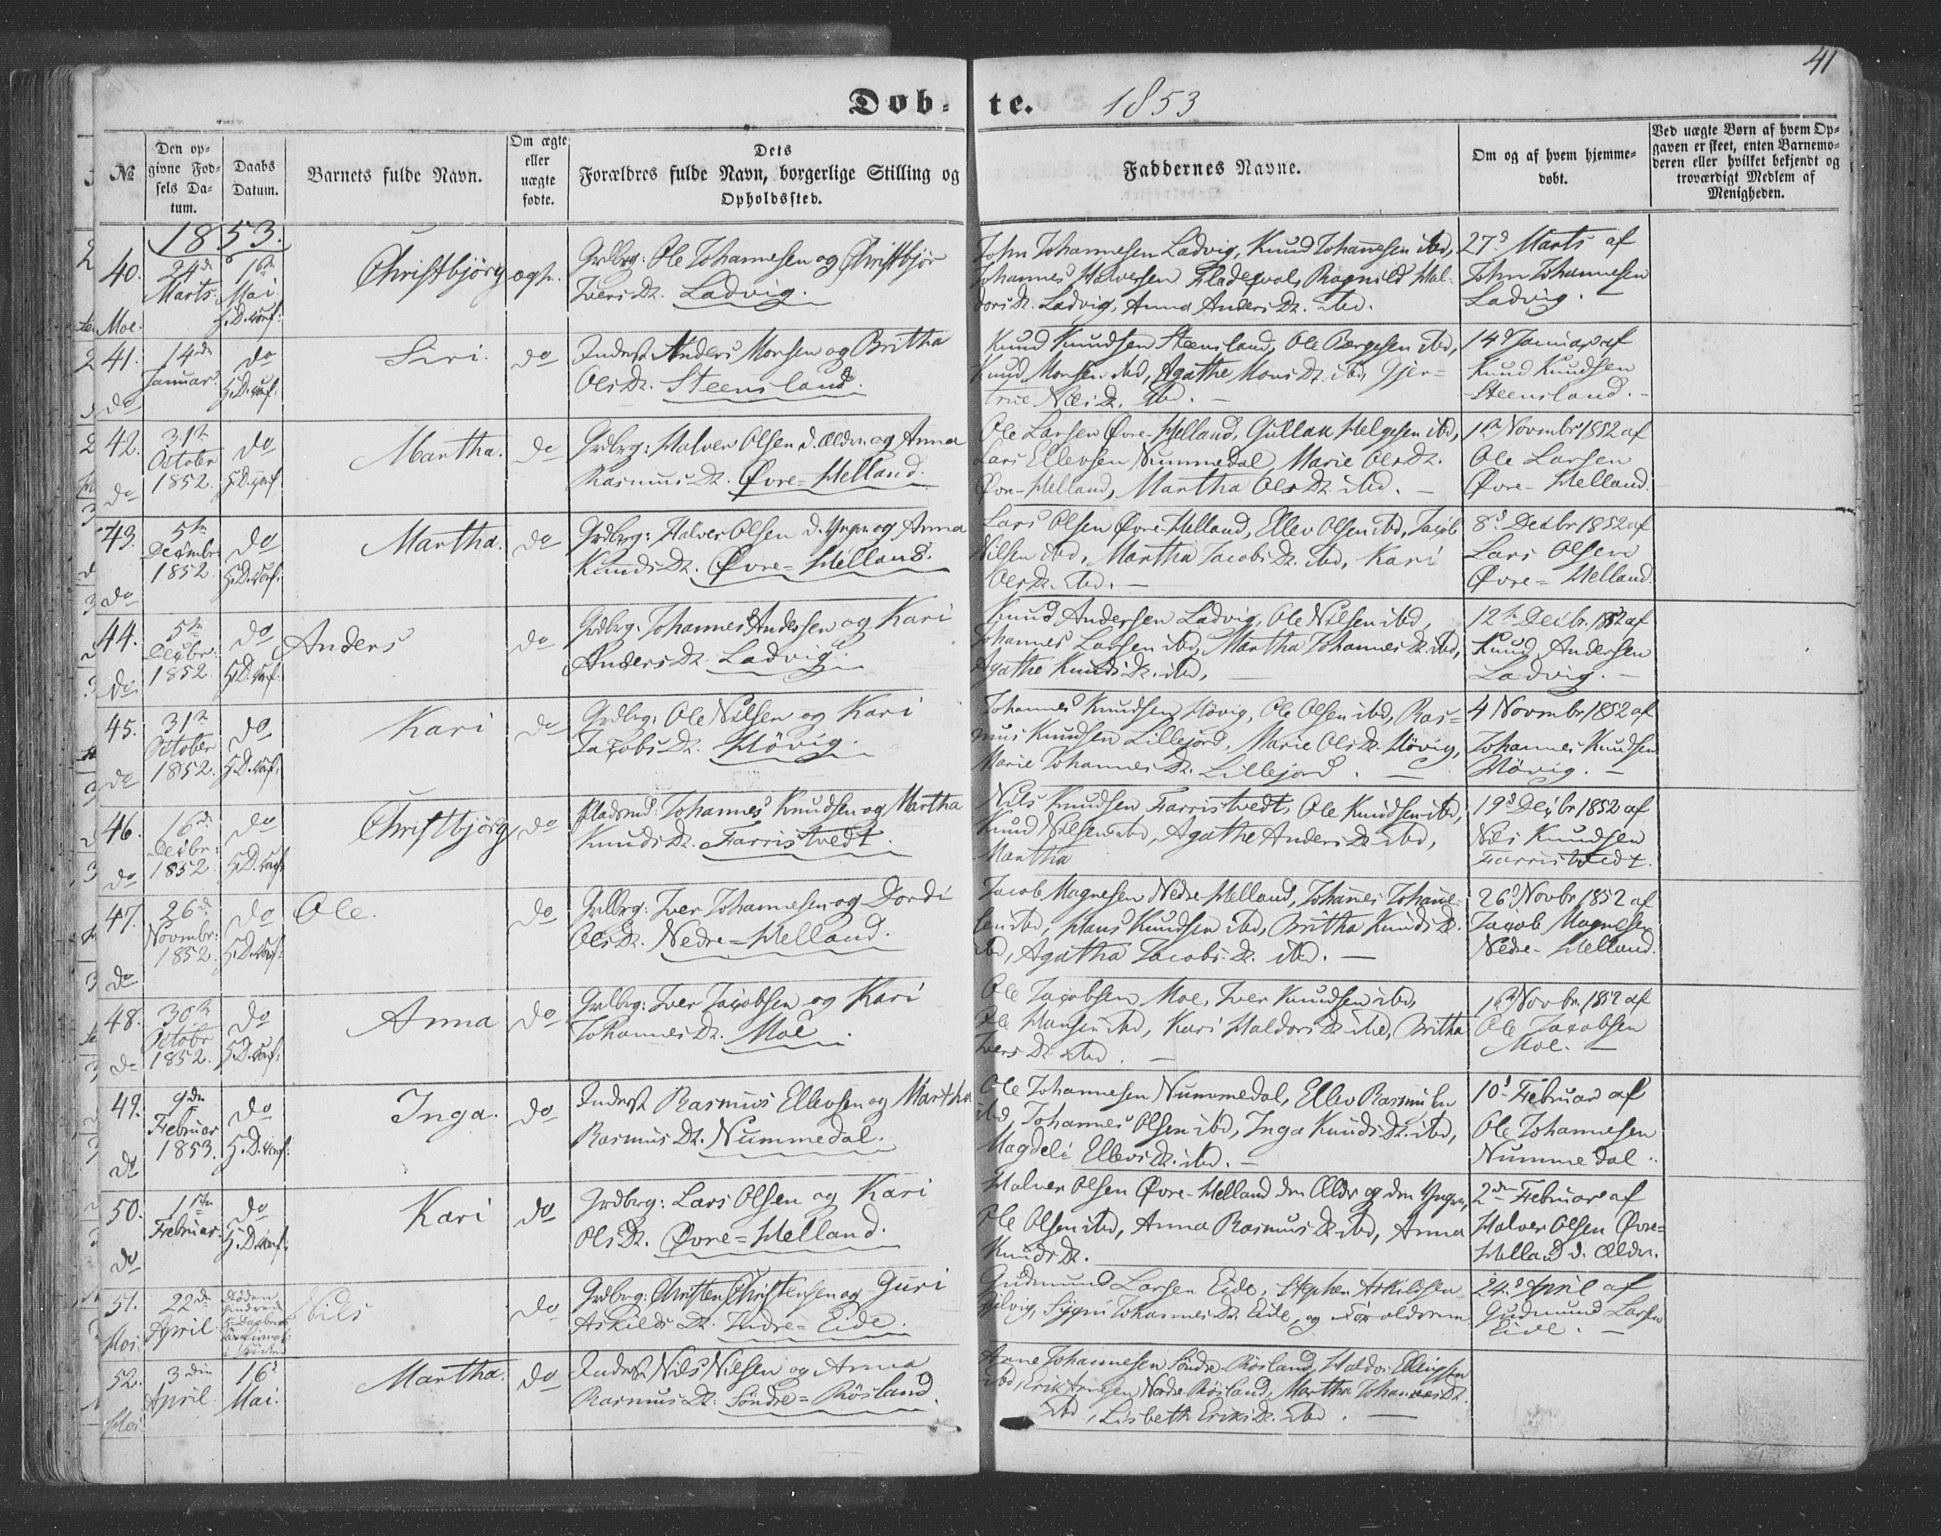 41
Døb- te. 1853
№
Den op-
givne Fød-
sels Da-
tum.
Daabs
Datum.
Barnets fulde Navn.
Om ægte
eller
uægte
fødte.
Dets
Forældres fulde Navn, borgerlige Stilling og
Opholdssted.
Faddernes Navne.
Om og af hvem hjemme-
døbt.
Ved uægte Børn af hvem Op-
gaven er skeet, enten Barnemo-
deren eller hvilket bekjendt og
troværdigt Medlem af
Menigheden.
1853.
40.
Moe.
24de
Marts.
1ste
Mai
H.D. conf.
Christbjörg
ægte.
Grdbrg: Ole Johannesen og Christbjör
Ivers Dt. Ladvig.
John Johannesen Ladvig, Knud Johannesen ibd,
Johannes Halversen Ragnild Hal-
dors Dt. Ladvig, Anna Anders Dt. ibd.
27d Marts af
John Johannesen
Ladvig.
41.
do
14de
Januar.
do
H.D. conf.
Siri.
do
Inderst Anders Monsen og Britha
Ols Dt. Steensland.
Knud Knudsen Steensland, Ole Børgesen ibd,
Knud Monsen ibd, Agathe Mons Dt. ibd, Gjer-
true Nils Dt. ibd.
14d Januar af
Knud Knudsen
Steensland.
42.
do
31te
Octobr
1852.
do
H.D. conf.
Martha.
do
Grdbrg: Halver Olsen d. Ældre og Anna
Rasmus Dt. Øvre-Helland.
Ole Larsen Øvre-Helland, Gullak Helgesen ibd,
Lars Ellevsen Nummedal, Marie Ols Dt.
Øvre-Helland, Martha Ols Dt. ibd.
1ste Novmbr 1852 af
Ole Larsen
Øvre-Helland.
43.
do
5te
Decembr
1852.
do
H.D. conf.
Martha.
do
Grdbrg: Halver Olsen d. Yngre og Anna
Knuds Dt. Øvre-Helland.
Lars Olsen Øvre-Helland, Ellev Olsen ibd, Jacob
Nilsen ibd, Martha Jacobs Dt. ibd, Kari
Ols Dt. ibd.
8d Decbr 1852 af
Lars Olsen
Øvre-Helland.
44.
do
5te
Decbr.
1852.
do
H.D. conf.
Anders
do
Grdbrg: Johannes Andersen og Kari
Anders Dt. Ladvig.
Knud Andersen Ladvig, Ole Nilsen ibd,
Johannes Larsen ibd, Martha Johannes Dt. ibd,
Agathe Knuds Dt. ibd,
12te Decbr. 1852 af
Knud Andersen
Ladvig.
45.
do
31te
October
1852.
do
H.D. conf.
Kari
do
Grdbrg: Ole Nilsen og Kari
Jacobs Dt. Hövig.
Johannes Knudsen Hövig, Ole Olsen ibd, Ras-
mus Knudsen Lillejord, Marie Ols Dt. Hövig,
Marie Johannes Dt. Lillejord.
4 Novmbr. 1852 af
Johannes Knudsen
Hövig.
46.
do
16de
Decbr:
1852.
do
H.D. conf.
Christbjörg
do
Pladsmd: Johannes Knudsen og Martha
Knuds Dt. Farristvedt.
Nils Knudsen Farristvedt, Ole Knudsen ibd,
Knud Nilsen ibd, Agathe Anders Dt. ibd,
Martha
19d Decbr 1852 af
Nils Knudsen
Farristvedt.
47.
do
26de
Novmbr:
1852.
do
H.D. conf.
Ole.
do
Grdbrg: Iver Johannesen og Dordi
Ols Dt. Nedre-Helland.
Jacob Magnesen Nedre-Helland, Johannes Johanne-
sen ibd, Hans Knudsen ibd, Britha Knuds Dt.
ibd, Agatha Jacobs Dt. ibd.
26d Novbr 1852 af
Jacob Magnesen
Nedre-Helland.
48.
do
30te
Octobr
1852.
do
H.D. conf.
Anna
do
Grdbrg: Iver Jacobsen og Kari
Johannes Dt. Moe.
Ole Jacobsen Moe, Iver Knudsen ibd,
Ole Hansen ibd, Kari Haldors Dt. ibd, Britha
Ivers Dt. ibd.
1ste Novbr. 1852 af
Ole Jacobsen
Moe.
49.
do
9de
Februar
1853.
do
H.D. conf.
Inga.
do
Inderst Rasmus Ellevsen og Martha
Rasmus Dt. Nummedal.
Ole Johannesen Nummedal, Ellev Rasmusen
ibd, Johannes Olsen ibd, Inga Knuds Dt. ibd,
Magdeli Ellevs Dt. ibd.
10d Februar af
Ole Johannesen
Nummedal.
50.
do
1ste
Februar.
do
H.D. conf.
Kari
do
Grdbrg: Lars Olsen og Kari
Ols Dt. Øvre-Helland.
Halver Olsen Øvre-Helland den Ældr og den Yngre,
Ole Olsen ibd, Anna Rasmus Dt. ibd, Anna
Knuds Dt.
2de Februar af
Halver Olsen Øvre-
Helland d. Ældre.
51.
Mos.
22de
April.
Nils
do
Grdbrg: Christen Christensen og Guri
Askilds Dt. Indre-Eide.
Gudmund Larsen Eide, Stephen Askildsen
Sygni Johannes Dt. Eide, og Forældrene
24d April af
Gudmund Larsen
Eide.
52.
Mos.
3die
April.
16d
Mai.
Martha.
do
Inderst Nils Nilsen og Anna
Rasmus Dt. Söndre-Rösland.
Arne Johannesen Söndre Rösland, Haldor Ellingsen
ibd, Erik Arnesen Nordre Rösland, Martha Johannes Dt.
ibd, Lisbeth Eriks Dt. ibd.